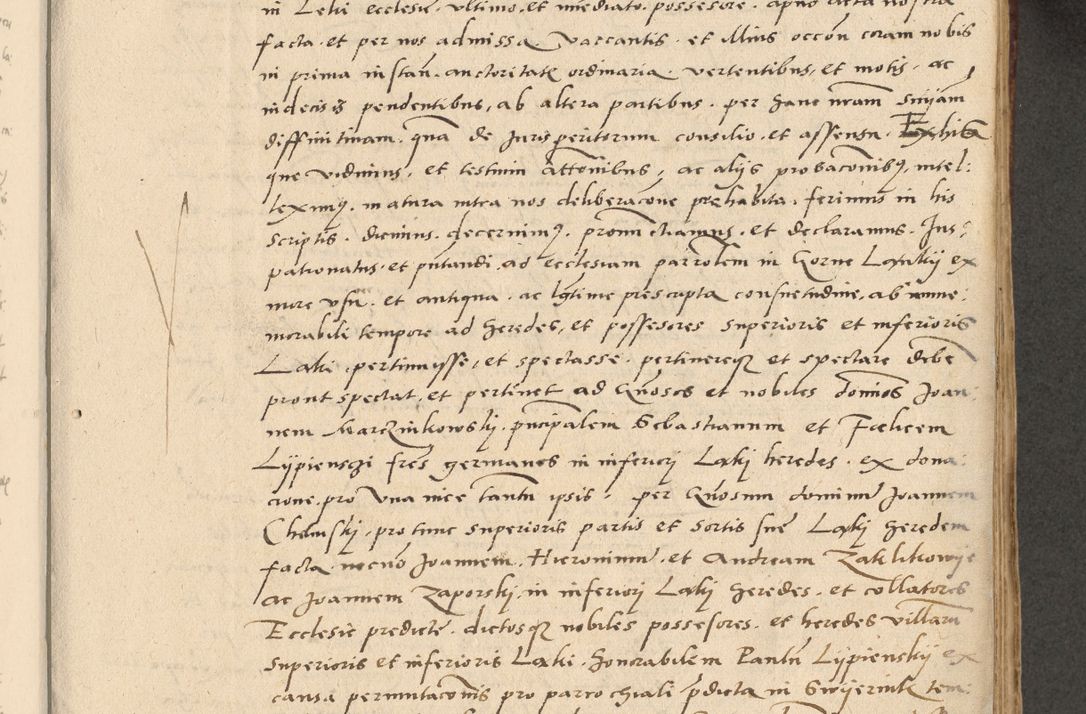 in Leki ecclesie ultimo et imediato possesore apud acta nostra
facta et per nos admissa vaccantis et illius occōn coram nobis
in prima instan. auctoritate ordinaria vertentibus, et motis, ac
indecisis pendentibus, ab altera partibus per hanc nrām sniam
diffinitivam, quā de Jurisperitorum consilio et assensu Exhibita
que vidimus, et testium Attōnibus, ac alijs probacōnibus, intel:
leximus, matura intra nos deliberacōne prehabita ferimus in his
scriptis, dicimus, decernimus, pronunctiamus, et declaramus, Jus:
patronatus et pn̄tandi ad Ecclesiam parrōlem in Gorne Laki ex
more usu et antiqua ac lgt̄ime prescripta consuetudine, ab imme:
morabili tempore ad heredes, et possesores superioris et inferioris
Laki pertinuisse, et spectasse pertinereque et spectare debe
prout spectat, et pertinet ad Gn̄osos et nobiles dominos Joan:
nem Marczinkowski, pn̄cipalem Sebastianum et Foelicem
Lypienszi frēs germanos in inferiori Laki heredes, ex dona:
cione pro una vice tantū ipsis, per Gn̄osum dominū Joannem
Chamski, pro tunc superioris partis et sortis sue Laki heredem
facta necnō Joannem, Hieronimū et Andream Zaklikowije
ac Joannem Zaporski in inferiori Laki heredes, et collatores
Ecclesie predicte, dictosque nobiles possesores, et heredes villarū
superioris et inferioris Laki honorabilem Paulū Lypienskij ex
causa permutacōnis pro parrochiali pd̄icta in Swijerink tem: